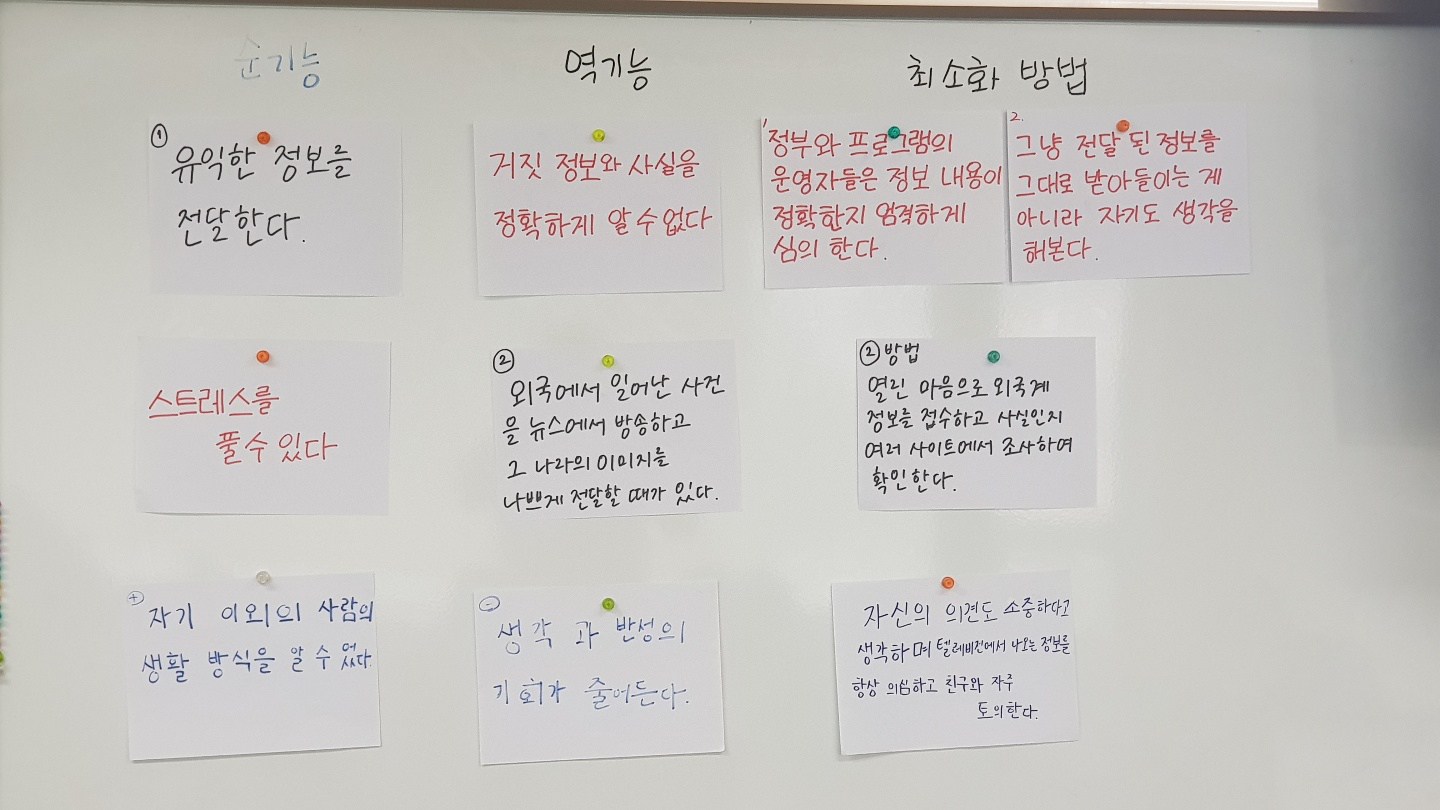 순기능
역기능
최소화 방법
① 유익한 정보를
전달한다.
거짓 정보와 사실을
정확하게 알 수 없다
1 정부와 프로그램의
운영자들은 정보 내용이
정확한지 엄격하게
심의 한다.
2.
그냥 전달 된 정보를
그대로 받아들이는 게
아니라 자기도 생각을
해본다.
스트레스를
풀 수 있다
②
외국에서 일어난 사건
을 뉴스에서 방송하고
그 나라의 이미지를
나쁘게 전달할 때가 있다.
② 방법
열린 마음으로 외국계
정보를 접수하고 사실인지
여러 사이트에서 조사하여
확인한다.
+ 자기 이외의 사람의
생활 방식을 알 수 있다.
- 생각 과 반성의
기회가 줄어든다.
자신의 의견도 소중하다고
생각하며 텔레비전에서 나오는 정보를
항상 의심하고 친구와 자주
토의한다.